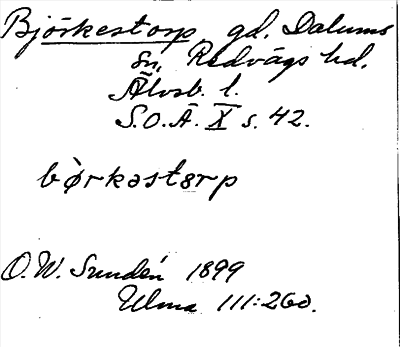 Björkestorp, gd. Dalums
sn, Redvägs hd.
Älvsb. l.
S.O.Ä. X s. 42.
bø̀rkəstɘrp
O. W. Sundén 1899
Ulma 111:260.